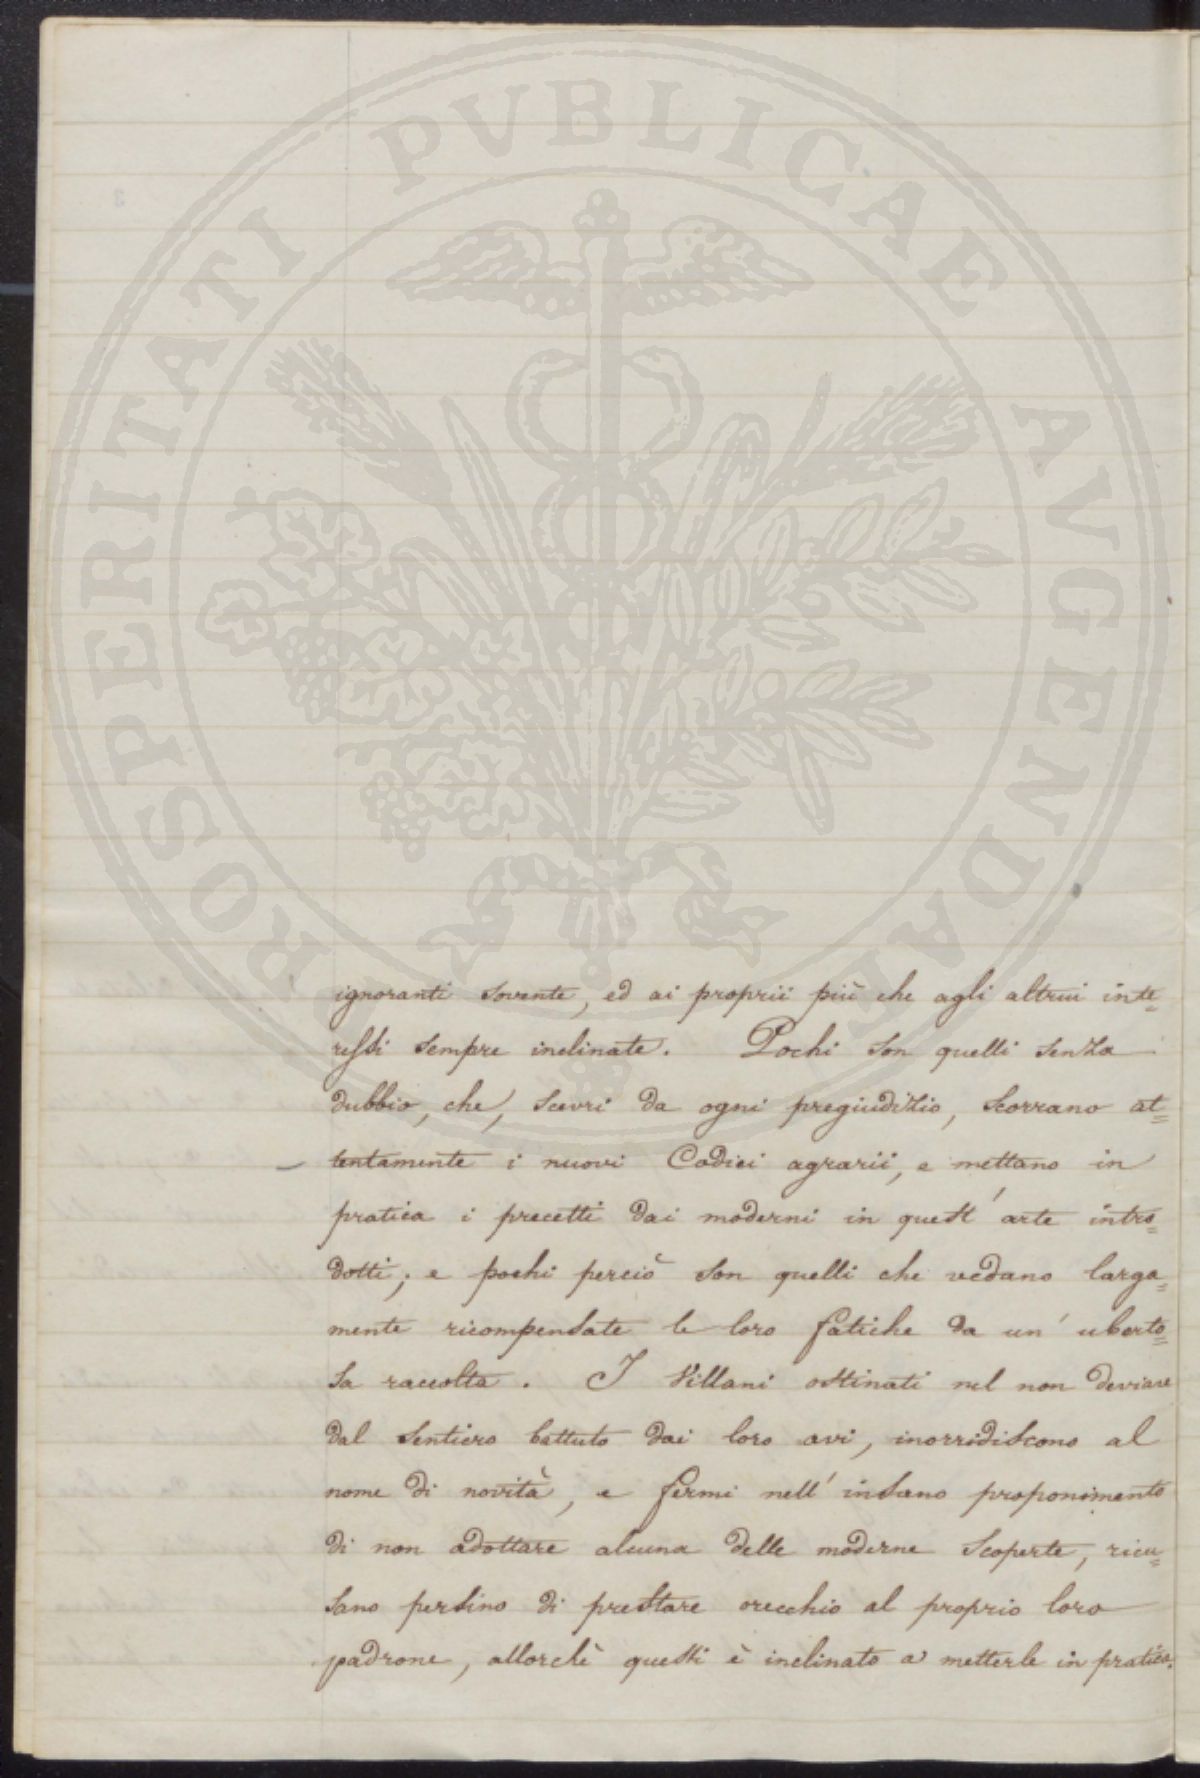 PROSPERITATI PUBLICAE AUGENDAE
ignoranti sovente, ed ai proprii più che agli altrui inte=
ressi sempre inclinate. Pochi son quelli senza
dubbio, che, scevri da ogni pregiudizio, scorrano at=
tentamente i nuovi Codici agrarii, e mettano in
pratica i precetti dai moderni in quest' arte intro=
dotti; e pochi perciò son quelli che vedano larga=
mente ricompensate le loro fatiche da un' uberto=
sa raccolta. I Villani ostinati nel non deviare
dal sentiero battuto dai loro avi, inorridiscono al
nome di novità, e fermi nell' insano proponimento
di non adottare alcuna delle moderne scoperte, ricu=
sano persino di prestare orecchio al proprio loro
padrone, allorchè questi è inclinato a metterle in pratica.